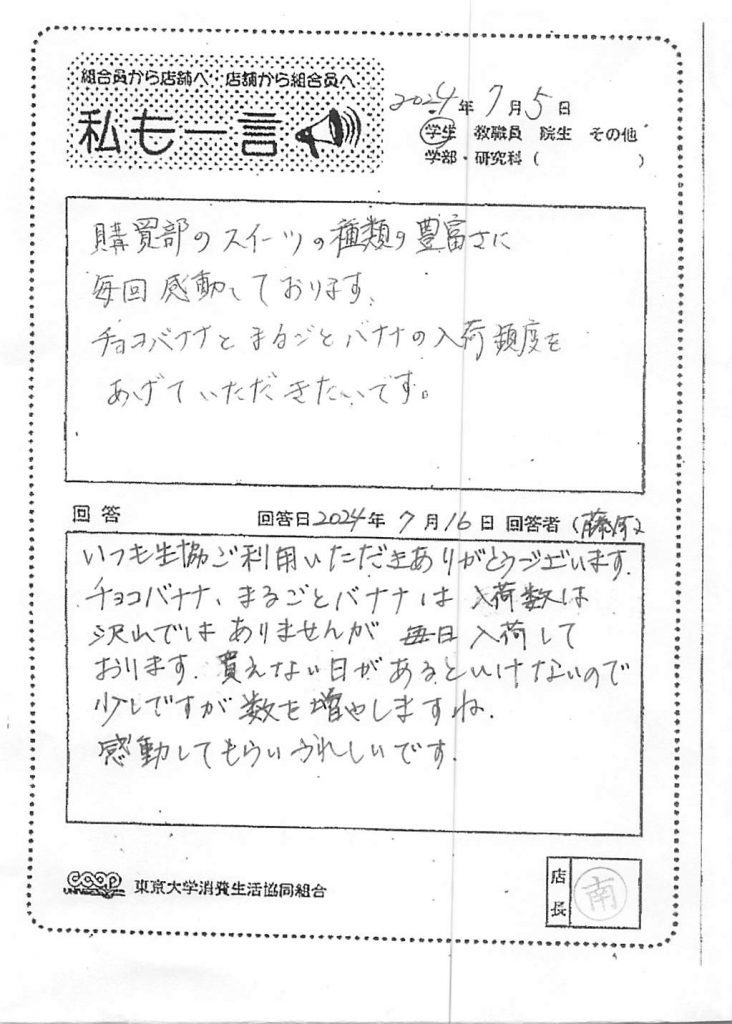 組合員から店舗へ・店舗から組合員へ
私も一言
2024年7月5日
学生 教職員 院生 その他
学部・研究科（ ）
購買部のスイーツの種類の豊富さに
毎回感動しております。
チョコバナナとまるごとバナナの入荷頻度を
あげていただきたいです。
回答 回答日2024年7月16日 回答者（藤河）
いつも生協ご利用いただきありがとうございます。
チョコバナナ、まるごとバナナは 入荷数は
沢山ではありませんが 毎日入荷して
おります。買えない日があるといけないので
少しですが数を増やしますね。
感動してもらいうれしいです。
coop
UNIVERSITY
東京大学消費生活協同組合
店長
南